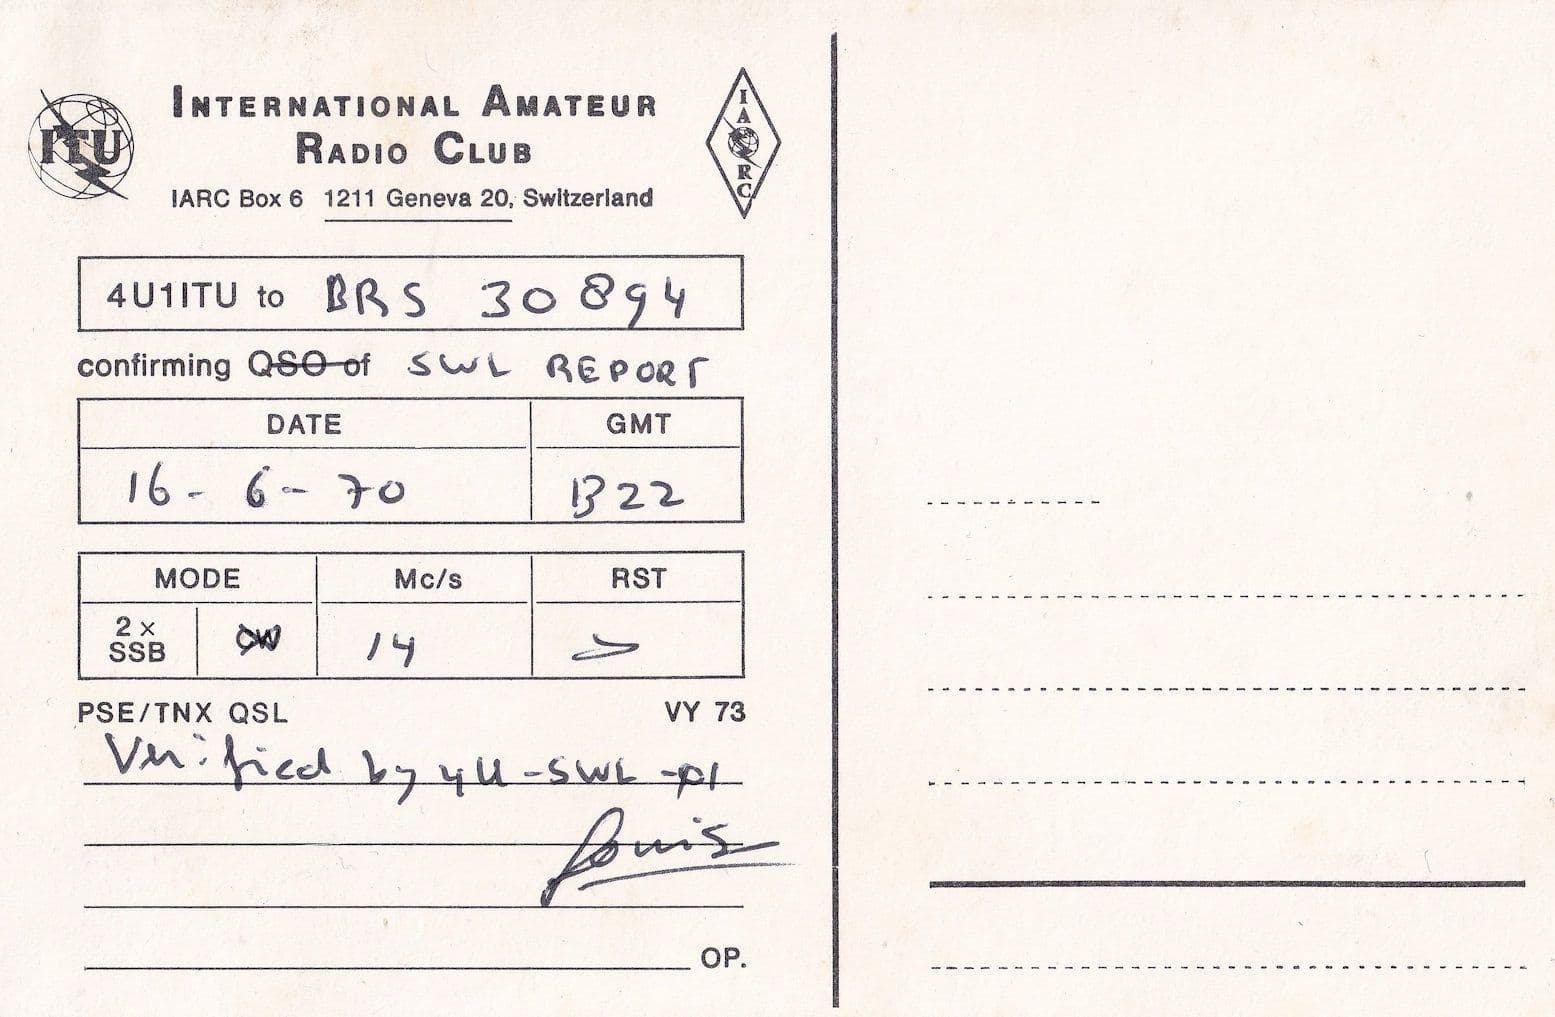 ITU
INTERNATIONAL AMATEUR
RADIO CLUB
IARC Box 6 1211 Geneva 20, Switzerland
IARC
4U1ITU to BRS 30894
confirming QSO of SWL REPORT
DATE GMT
16-6-70 1322
MODE Mc/s RST
2 x
SSB CW 14
PSE/TNX QSL VY 73
Verified by 4U-SWL-01
Louis
OP.